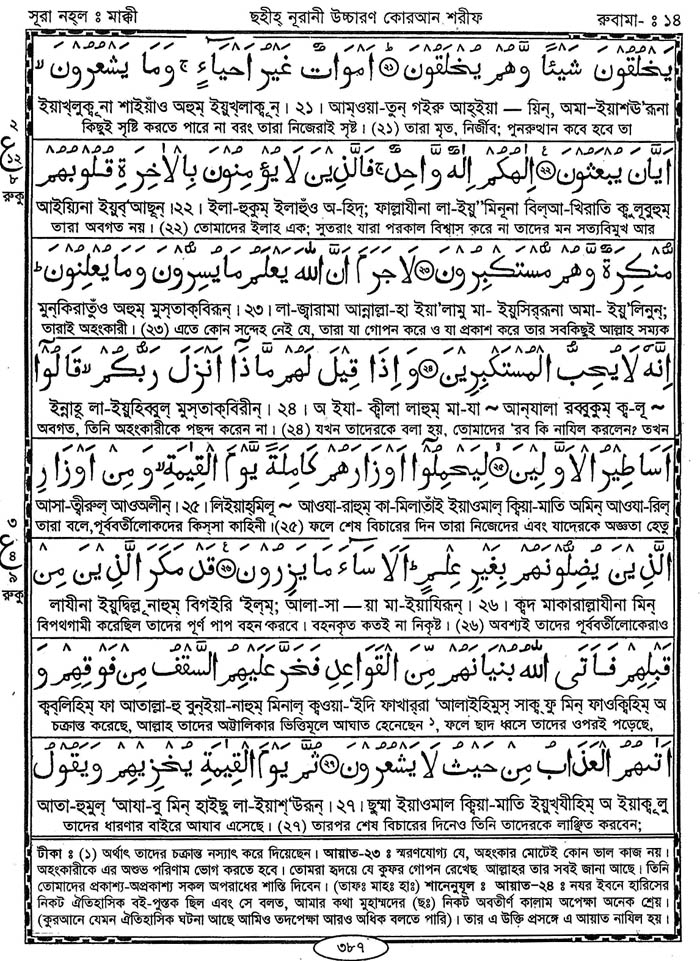 সূরা নহ্‌ল ঃ মাক্কী ছহীহ্ নূরানী উচ্চারণ কোরআন শরীফ রুবামা- ঃ ১৪
يَخْلُقُونَ شَيْئًا وَّهُمْ يُخْلَقُونَ ۝٢٠ اَمْوَاتٌ غَيْرُ اَحْيَاءٍ ۚ وَمَا يَشْعُرُونَ ۙ
ইয়াখ্‌লুকূ্না শাইয়াঁও অহুম্ ইয়ুখ্‌লাকূ্ন্। ২১। আম্‌ওয়া-তুন্ গইরু আহ্‌ইয়া — য়িন্, অমা–ইয়াশ‘ঊরূনা
কিছুই সৃষ্টি করতে পারে না বরং তারা নিজেরাই সৃষ্ট। (২১) তারা মৃত, নির্জীব; পুনরুত্থান কবে হবে তা
২
ع
১২
৮
রুকু
اَيَّانَ يُبْعَثُونَ ۝٢١ اِلٰهُكُمْ اِلٰهٌ وَّاحِدٌ ۚ فَالَّذِينَ لَا يُؤْمِنُونَ بِالْاٰخِرَةِ قُلُوبُهُمْ
আইয়্যিনা ইয়ুব্‘আছূন্। ২২। ইলা-হুকুম্ ইলাহুঁও অ-হিদ্; ফাল্লাযীনা লা-ইয়ু’’মিনূনা বিল্‌আ-খিরাতি কু্লূবুহুম্
তারা অবগত নয়। (২২) তোমাদের ইলাহ এক; সুতরাং যারা পরকাল বিশ্বাস করে না তাদের মন সত্যবিমুখ আর
مُّنْكِرَةٌ وَّهُمْ مُّسْتَكْبِرُونَ ۝٢٢ لَا جَرَمَ اَنَّ اللّٰهَ يَعْلَمُ مَا يُسِرُّونَ وَمَا يُعْلِنُونَ ؕ
মুন্‌কিরাতুঁও অহুম্ মুস্‌তাক্‌বিরূন্। ২৩। লা-জ্বারামা আন্নাল্লা-হা ইয়া‘লামু মা- ইয়ুসির্‌রূনা অমা- ইয়ু‘লিনূন্;
তারাই অহংকারী। (২৩) এতে কোন সন্দেহ নেই যে, তারা যা গোপন করে ও যা প্রকাশ করে তার সবকিছুই আল্লাহ সম্যক
اِنَّهٗ لَا يُحِبُّ الْمُسْتَكْبِرِينَ ۝٢٣ وَاِذَا قِيلَ لَهُمْ مَّاذَا اَنْزَلَ رَبُّكُمْ ۙ قَالُوا
ইন্নাহূ লা-ইয়ুহিব্বুল্ মুস্‌তাক্‌বিরীন্। ২৪। অ ইযা- কী্লা লাহুম্ মা-যা ~ আন্‌যালা রব্বুকুম্ ক্ব-লূ ~
অবগত, তিনি অহংকারীকে পছন্দ করেন না। (২৪) যখন তাদেরকে বলা হয়, তোমাদের ‘রব কি নাযিল করলেন? তখন
৩
ع
৪
৯
রুকু
اَسَاطِيرُ الْاَوَّلِينَ ۝٢٤ لِيَحْمِلُوا اَوْزَارَهُمْ كَامِلَةً يَّوْمَ الْقِيٰمَةِ ۙ وَمِنْ اَوْزَارِ
আসা-ত্বীরুল্ আওঅলীন্। ২৫। লিইয়াহ্‌মিলূ ~ আওযা-রাহুম্ কা-মিলাতাঁই ইয়াওমাল্ ক্বিয়া-মাতি অমিন্ আওযা-রিল্
তারা বলে, পূর্ববর্তীলোকদের কিস্‌সা কাহিনী। (২৫) ফলে শেষ বিচারের দিন তারা নিজেদের এবং যাদেরকে অজ্ঞতা হেতু
الَّذِينَ يُضِلُّونَهُمْ بِغَيْرِ عِلْمٍ ؕ اَلَا سَاءَ مَا يَزِرُونَ ۝٢٥ قَدْ مَكَرَ الَّذِينَ مِنْ
লাযীনা ইয়ুদ্বিল্লূ নাহুম্ বিগইরি ‘ইল্‌ম্; আলা-সা — য়া মা-ইয়াযিরূন্। ২৬। ক্বদ্ মাকারাল্লাযীনা মিন্
বিপথগামী করেছিল তাদের পূর্ণ পাপ বহন করবে। বহনকৃত কতই না নিকৃষ্ট। (২৬) অবশ্যই তাদের পূর্ববর্তীলোকেরাও
قَبْلِهِمْ فَاَتَى اللّٰهُ بُنْيَانَهُمْ مِّنَ الْقَوَاعِدِ فَخَرَّ عَلَيْهِمُ السَّقْفُ مِنْ فَوْقِهِمْ وَ
ক্ব্‌ব্‌লিহিম্ ফা আতাল্লা-হু বুন্‌ইয়া-নাহুম্ মিনাল্ ক্বওয়া-‘ইদি ফাখার্‌রা ‘আলাইহিমুস্ সাক্‌ ফু মিন্ ফাওক্বিহিম্ অ
চক্রান্ত করেছে, আল্লাহ তাদের অট্টালিকার ভিত্তিমূলে আঘাত হেনেছেন ১, ফলে ছাদ ধ্বসে তাদের ওপরই পড়েছে,
اَتٰىهُمُ الْعَذَابُ مِنْ حَيْثُ لَا يَشْعُرُونَ ۝٢٦ ثُمَّ يَوْمَ الْقِيٰمَةِ يُخْزِيهِمْ وَيَقُولُ
আতা-হুমুল্ ‘আযা-বু মিন্ হাইছু লা-ইয়াশ্‘উরূন্। ২৭। ছুম্মা ইয়াওমাল্ ক্বিয়া-মাতি ইয়ুখ্‌যীহিম্ অ ইয়াকূ্লু
তাদের ধারণার বাইরে আযাব এসেছে। (২৭) তারপর শেষ বিচারের দিনেও তিনি তাদেরকে লাঞ্ছিত করবেন;
টীকা ঃ (১) অর্থাৎ তাদের চক্রান্ত নস্যাৎ করে দিয়েছেন। আয়াত-২৩ ঃ স্মরণযোগ্য যে, অহংকার মোটেই কোন ভাল কাজ নয়।
অহংকারীকে এর অশুভ পরিণাম ভোগ করতে হবে। তোমরা হৃদয়ে যে কুফর গোপন রেখেছ আল্লাহর তার সবই জানা আছে। তিনি
তোমাদের প্রকাশ্য-অপ্রকাশ্য সকল অপরাধের শাস্তি দিবেন। (তাফঃ মাহঃ হাঃ) শানেনুযূল ঃ আয়াত-২৪ ঃ নযর ইবনে হারিসের
নিকট ঐতিহাসিক বই-পুস্তক ছিল এবং সে বলত, আমার কথা মুহাম্মদের (ছঃ) নিকট অবতীর্ণ কালাম অপেক্ষা অনেক শ্রেয়।
(কুরআনে যেমন ঐতিহাসিক ঘটনা আছে আমিও তদপেক্ষা আরও অধিক বলতে পারি)। তার এ উক্তি প্রসঙ্গে এ আয়াত নাযিল হয়।
৩৮৭